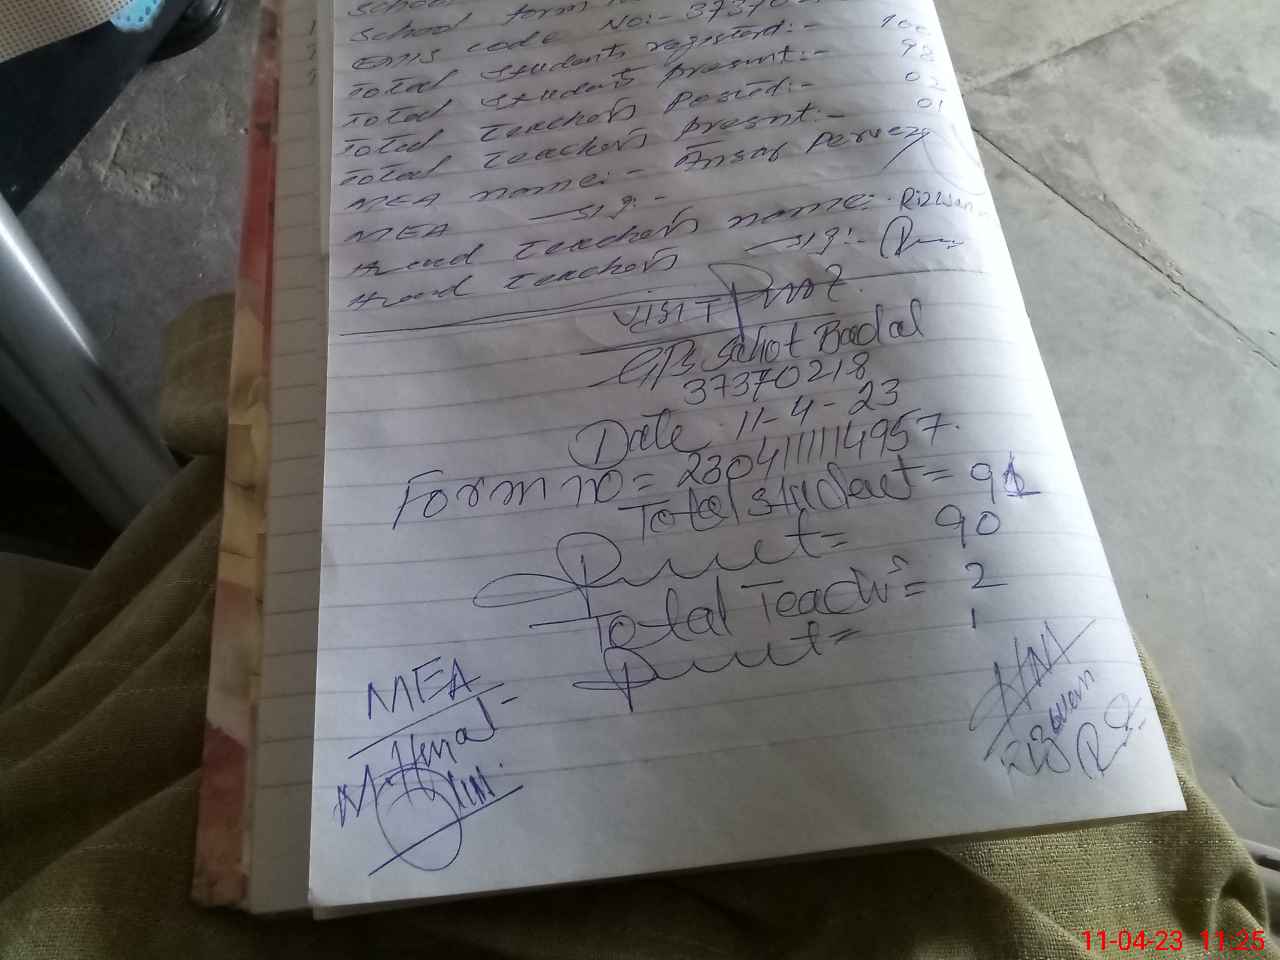 School form
EMIS code No:- 373702
Total students registerd:- 100
Total students present:- 98
Total Teachers Posted:- 02
Total Teachers present:- 01
MEA name:- Ansar Pervez
MEA sig:-
Head Teachers name:- Rizwan
Head Teachers sig:-
VISIT
GPS Sahot Badal
37370218
Date 11-4-23
Form no = 230411114957.
Total student = 91
Present = 90
Total Teach = 2
Present = 1
MEA
HM
Rizwan
11-04-23 11:25